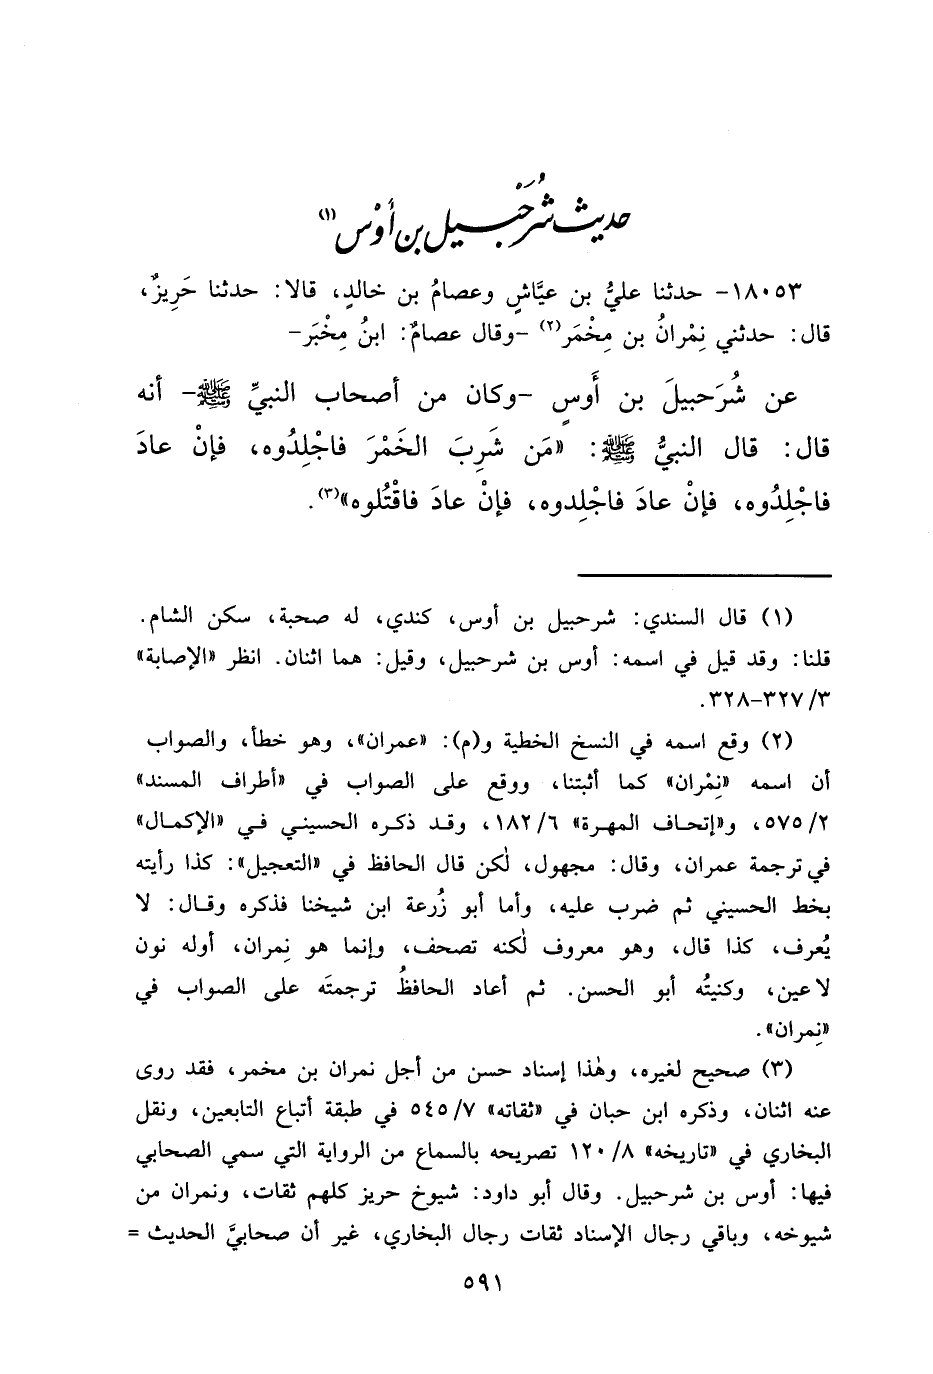 حديث شُرَحْبيل بن أَوْس (١)
١٨٠٥٣- حدثنا عليُّ بن عيَّاشٍ وعصامُ بن خالدٍ، قالا: حدثنا حَرِيزٌ،
قال: حدثني نِمْرانُ بن مِخْمَر(٢) -وقال عصامٌ: ابنُ مِخْبَر-
عن شُرَحبيلَ بن أَوسٍ -وكان من أصحاب النبيِّ ﷺ- أنه
قال: قال النبيُّ ﷺ: «مَن شَرِبَ الخَمْرَ فاجْلِدُوه، فإنْ عادَ
فاجْلِدُوه، فإنْ عادَ فاجْلِدوه، فإنْ عادَ فاقْتُلوه»(٣).
(١) قال السندي: شرحبيل بن أوس، كندي، له صحبة، سكن الشام.
قلنا: وقد قيل في اسمه: أوس بن شرحبيل، وقيل: هما اثنان. انظر «الإصابة»
٣/ ٣٢٧-٣٢٨.
(٢) وقع اسمه في النسخ الخطية و(م): «عمران»، وهو خطأ، والصواب
أن اسمه «نِمْران» كما أثبتنا، ووقع على الصواب في «أطراف المسند»
٢/ ٥٧٥، و«إتحاف المهرة» ٦/ ١٨٢، وقد ذكره الحسيني في «الإكمال»
في ترجمة عمران، وقال: مجهول، لٰكن قال الحافظ في «التعجيل»: كذا رأيته
بخط الحسيني ثم ضرب عليه، وأما أبو زُرعة ابن شيخنا فذكره وقال: لا
يُعرف، كذا قال، وهو معروف لٰكنه تصحف، وإنما هو نِمران، أوله نون
لا عين، وكنيتُه أبو الحسن. ثم أعاد الحافظُ ترجمتَه على الصواب في
«نِمران».
(٣) صحيح لغيره، وهٰذا إسناد حسن من أجل نمران بن مخمر، فقد روى
عنه اثنان، وذكره ابن حبان في «ثقاته» ٧/ ٥٤٥ في طبقة أتباع التابعين، ونقل
البخاري في «تاريخه» ٨/ ١٢٠ تصريحه بالسماع من الرواية التي سمي الصحابي
فيها: أوس بن شرحبيل. وقال أبو داود: شيوخ حريز كلهم ثقات، ونمران من
شيوخه، وباقي رجال الإسناد ثقات رجال البخاري، غير أن صحابيَّ الحديث =
٥٩١